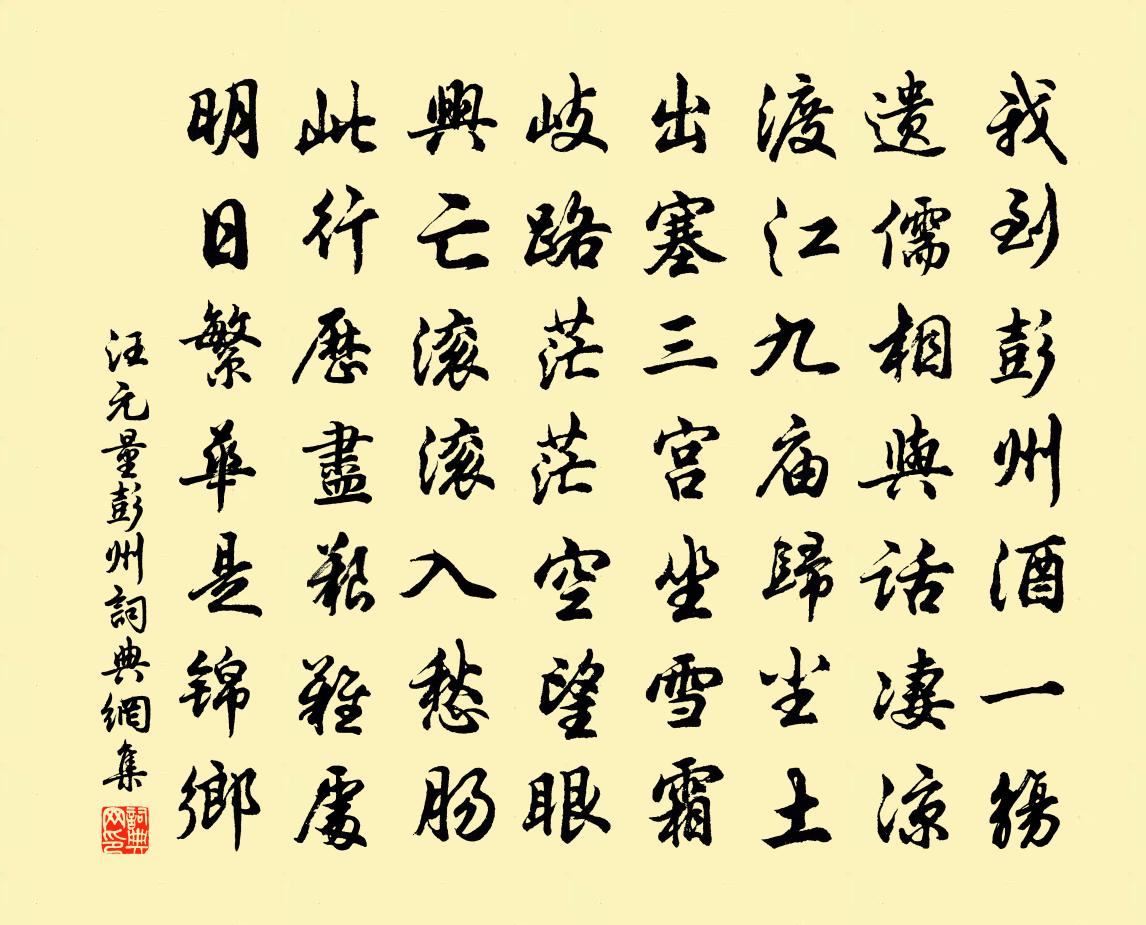 我到彭州酒一觴
遗儒相與話凄涼
渡江九庙歸尘土
出塞三宮坐雪霜
歧路茫茫空望眼
興亡滚滚入愁肠
此行歷盡艱難處
明日繁華是锦鄉
汪元量彭州詞典網集
詞典网印